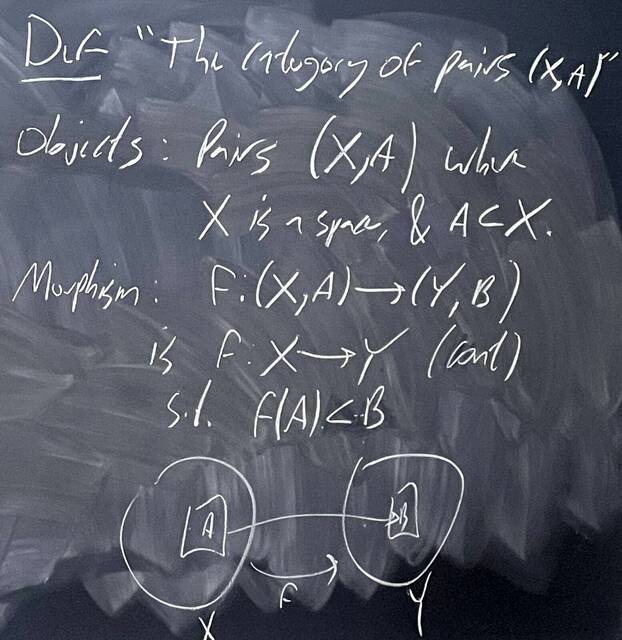 Def "The category of pairs (X,A)"
Objects: Pairs (X,A) where
X is a space, & A⊂X.
Morphism: F:(X,A)→(Y,B)
is F:X→Y (cont)
s.t. F(A)⊂B
A B
F
X Y